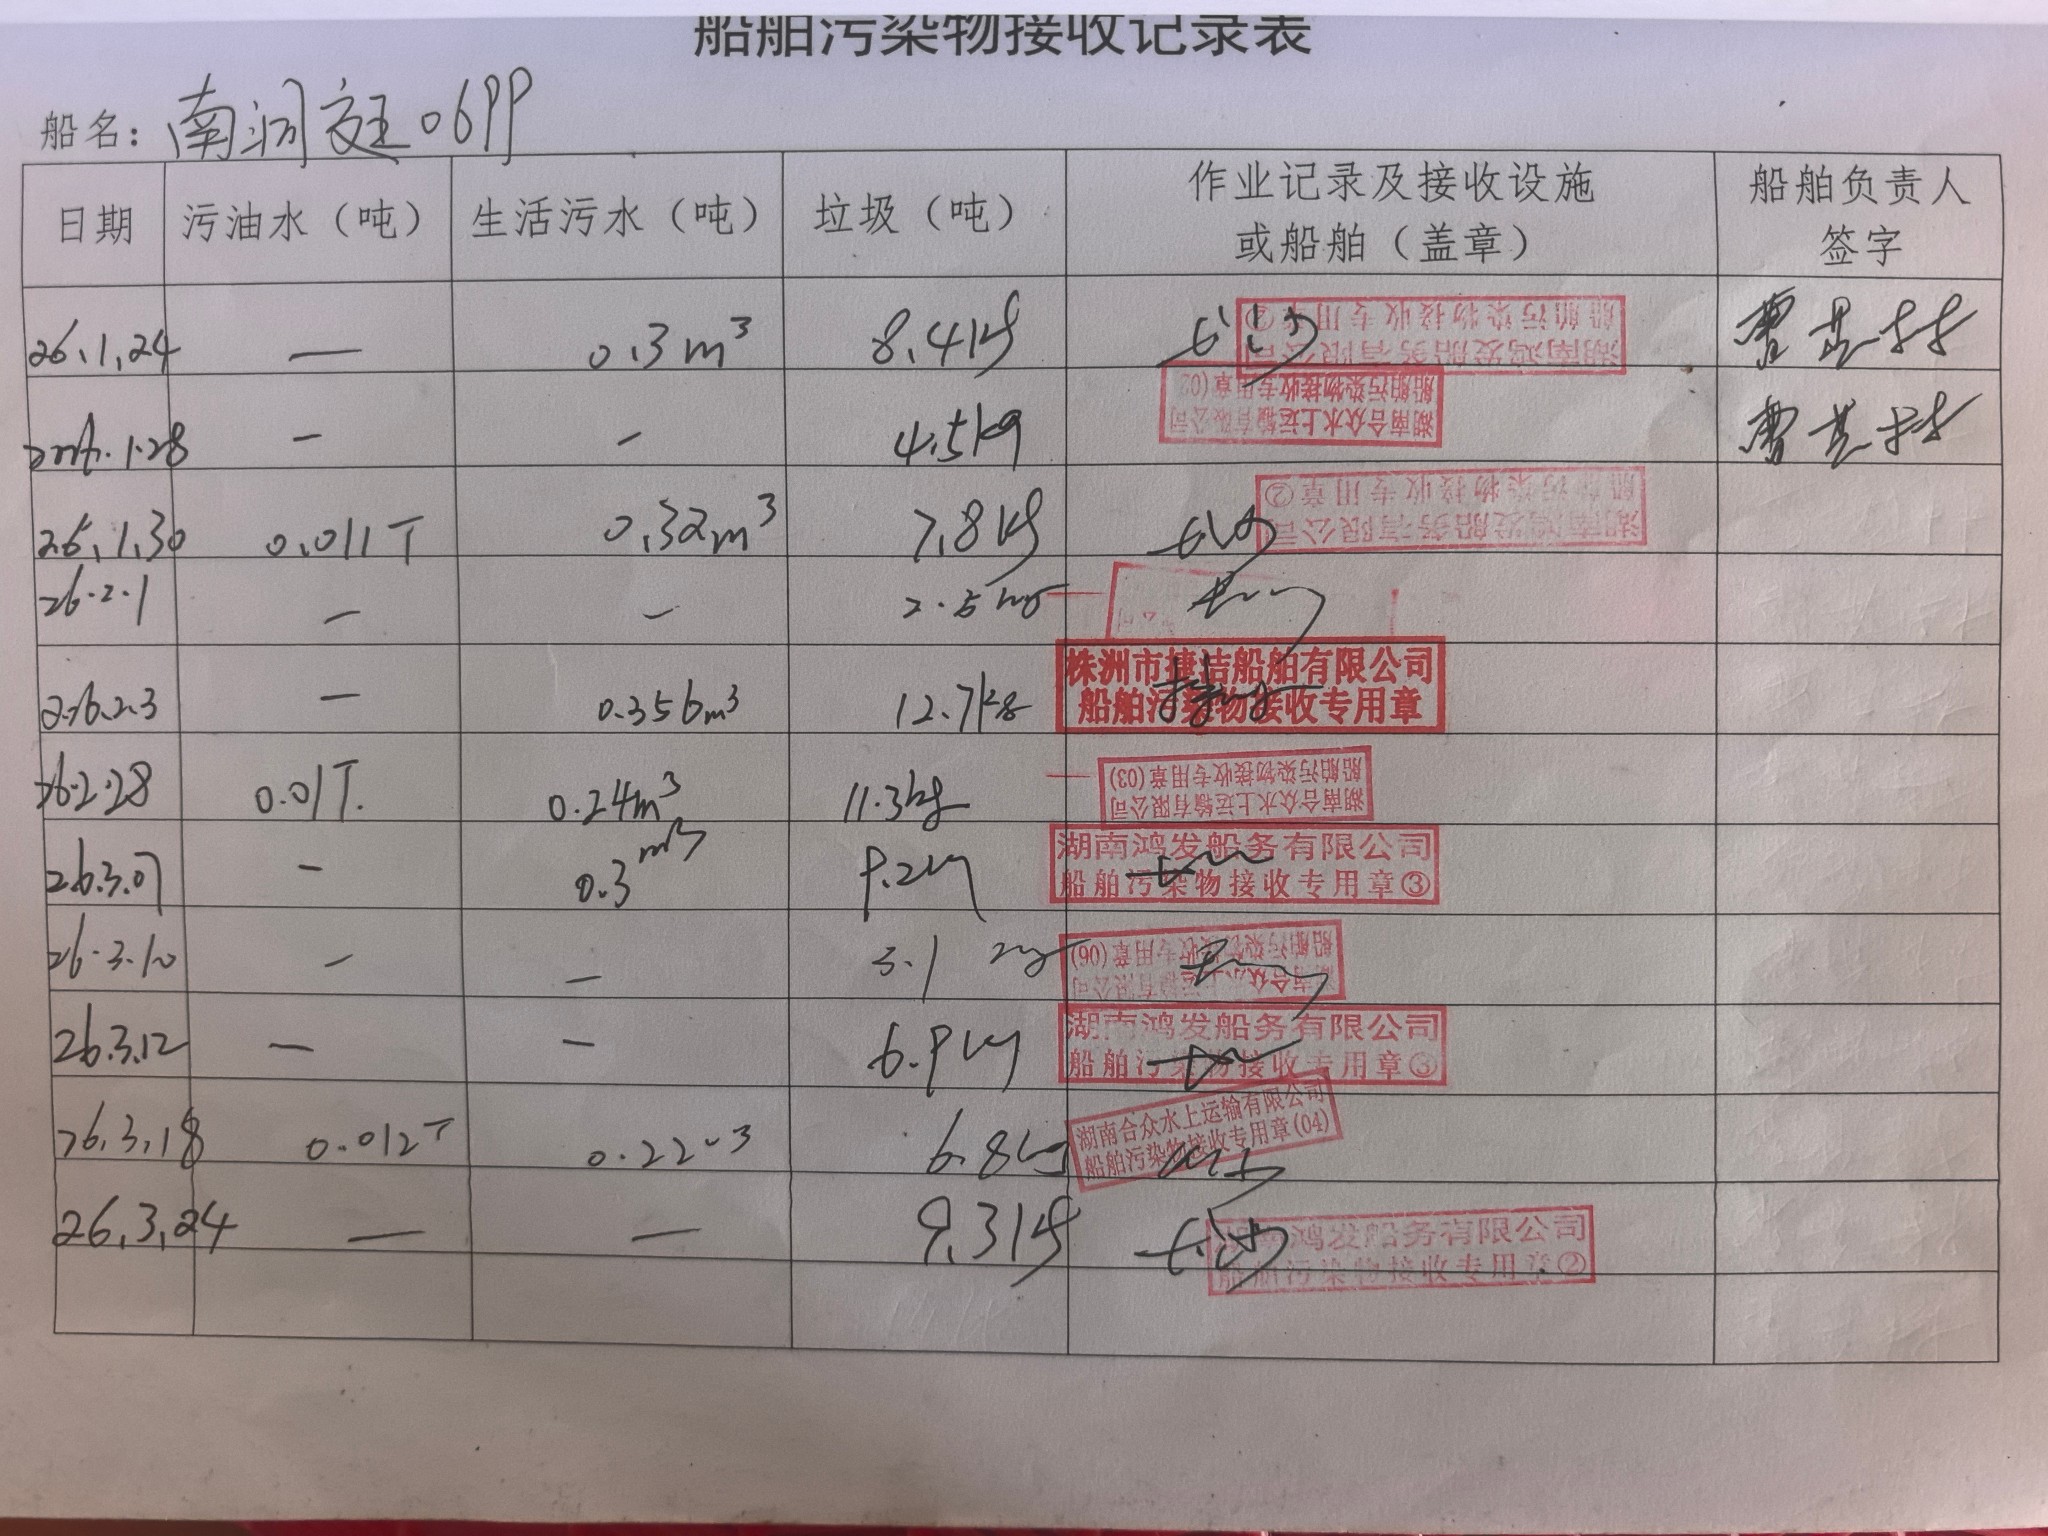 船舶污染物接收记录表
船名：南洞庭0699
日期 污油水（吨） 生活污水（吨） 垃圾（吨） 作业记录及接收设施或船舶（盖章） 船舶负责人签字
26.1.24 — 0.3m³ 8.4kg 长沙 湖南鸿发船务有限公司 船舶污染物接收专用章②
1.28 — — 4.5kg 湖南合众水上运输有限公司 船舶污染物接收专用章
26.1.30 0.011T 0.32m³ 7.8kg 长沙 湖南鸿发船务有限公司 船舶污染物接收专用章②
26.2.1 — — 2.5kg
26.2.3 — 0.356m³ 12.7kg 株洲市捷洁船舶有限公司 船舶污染物接收专用章
26.2.28 0.01T. 0.24m³ 11.3kg 湖南合众水上运输有限公司 船舶污染物接收专用章(03)
26.3.07 — 0.3m³ 9.2kg 湖南鸿发船务有限公司 船舶污染物接收专用章③
26.3.10 — — 3.1kg 湖南合众水上运输有限公司 船舶污染物接收专用章(06)
26.3.12 — — 6.9kg 湖南鸿发船务有限公司 船舶污染物接收专用章③
26.3.18 0.012T 0.22m³ 6.8kg 湖南合众水上运输有限公司 船舶污染物接收专用章(04)
26.3.24 — — 9.3kg 长沙 湖南鸿发船务有限公司 船舶污染物接收专用章②